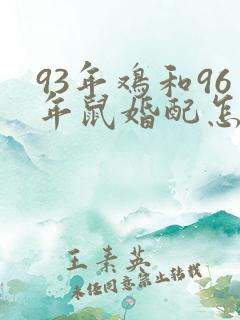 93年鸡和96
年鼠婚配怎
王素英
未经同意禁止转载